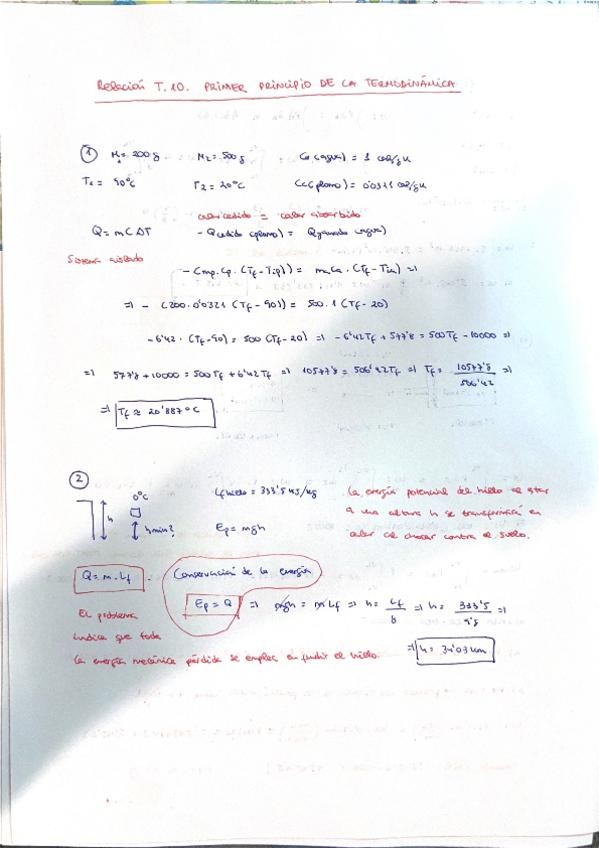 Relación T.10. PRIMER PRINCIPIO DE LA TERMODINÁMICA
1 M1 = 200g M2 = 500g Ce (agua) = 1 cal/gK
T1 = 90°C T2 = 20°C Ce (plomo) = 0'0321 cal/gK
calor cedido = calor absorbido
Q = mCΔT - Qcedido (plomo) = Qganado (agua)
Sistema aislado
- (mp. Cp. (Tf - Tip)) = ma Ca. (Tf - Tia) =>
=> - (200. 0'0321 (Tf - 90)) = 500. 1 (Tf - 20)
-6'42. (Tf - 90) = 500 (Tf - 20) => -6'42Tf + 577'8 = 500Tf - 10000 =>
=> 577'8 + 10000 = 500Tf + 6'42Tf => 10577'8 = 506'42Tf => Tf = 10577'8 / 506'42 =>
=> Tf ≈ 20'887°C
2 Lf hielo = 333'5 kJ/kg La energía potencial del hielo al estar
0°C a una altura h se transformará en
h hmin? Ep = mgh calor al chocar contra el suelo.
Q = m. Lf. Conservación de la energía
Ep = Q => mgh = m Lf => h = Lf / g => h = 333'5 / 9'8 =>
El problema
indica que toda => h = 34'03 km
la energía mecánica pérdida se emplea en fundir el hielo.